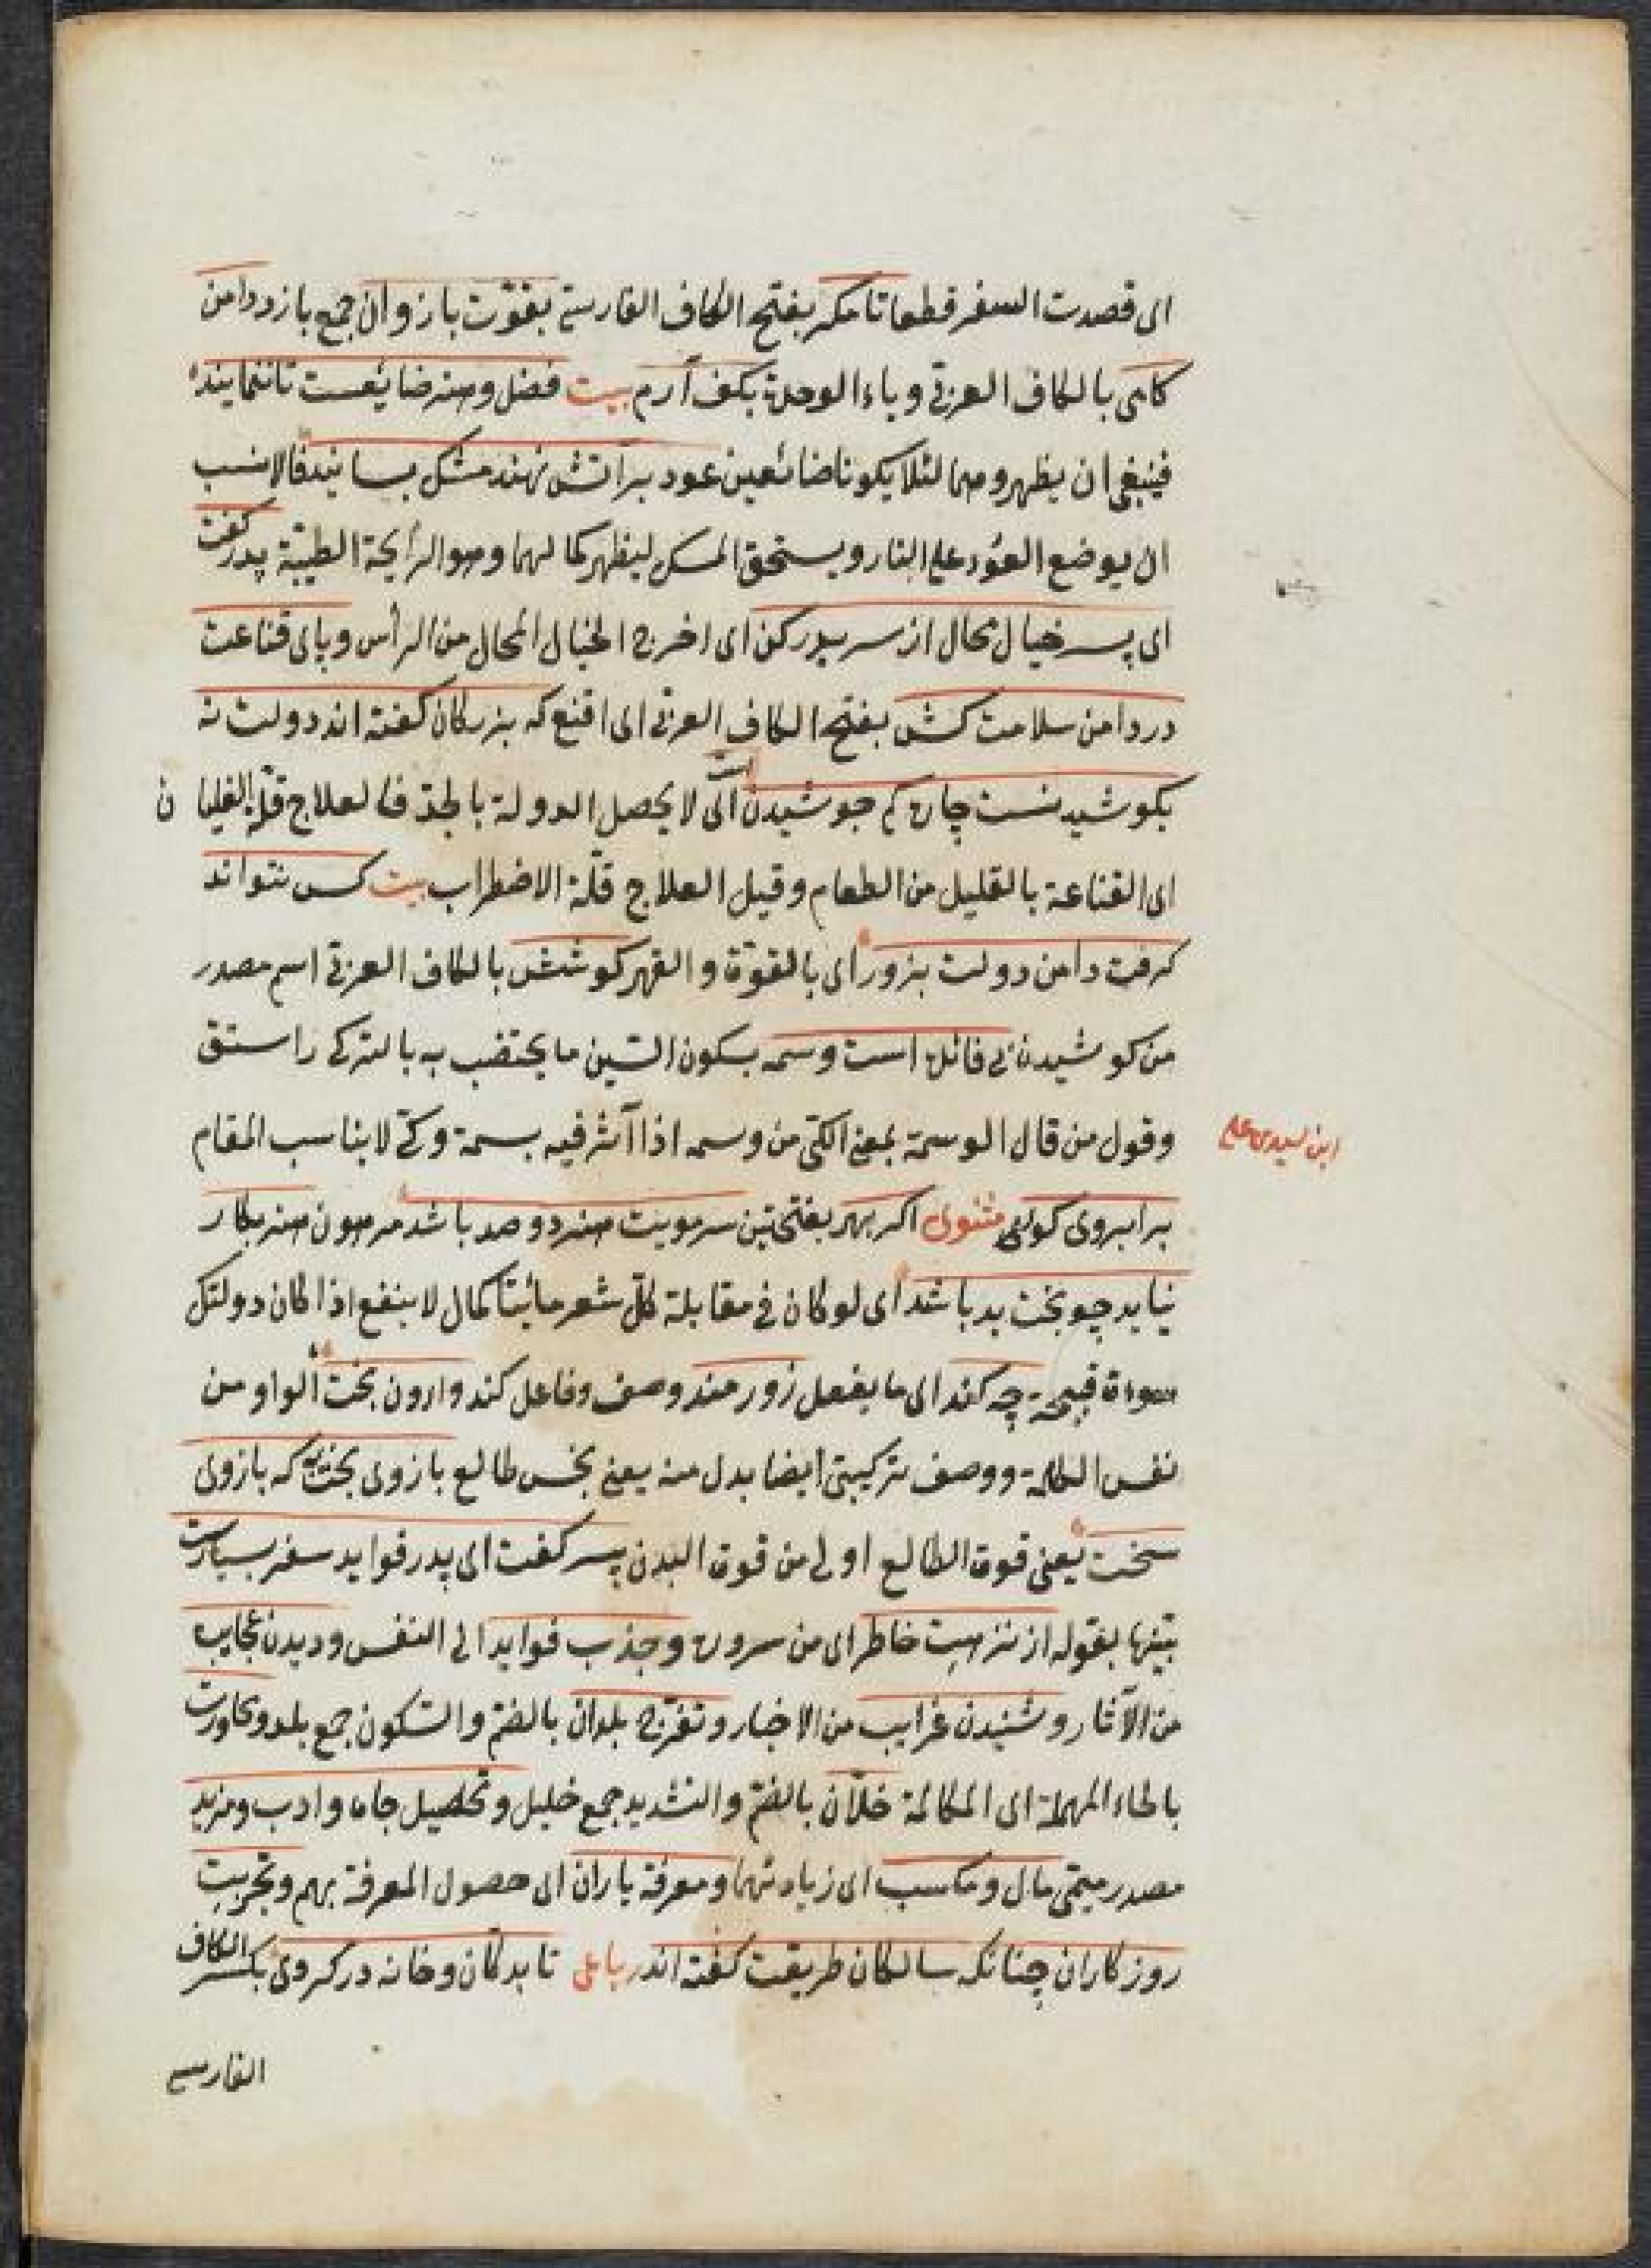 ای قصدت السفر قطعا تا مکر بفتح الکاف الفارسیة بقوّت بازوان جمع بازو دامن
کامی بالکاف العربی وباء الوحدة بکف آرم بیت فضل وهنر ضایعست تا ننمایند
فینبغی ان یظهر وهما لئلا یکونا ضائعین عود برآتش نهند مشک بسایند فالانسب
ان یوضع العود علی النار ویستحق المسک لیظهر کمالهما وهو الرایحة الطیّبة پدر کفت
ای پسر خیال محال از سر بدر کن ای اخرج الخیال المحال من الرأس وپای قناعت
در دامن سلامت کش بفتح الکاف العربی ای اقنع که بزرکان کفته اند دولت نه
بکوشیدنست چاره کم جوشیدن است ای لا یحصل الدولة بالجدّ فالعلاج قلّة الغلیان
ای القناعة بالقلیل من الطعام وقیل العلاج قلّة الاضطراب بیت کس نتواند
کرفت دامن دولت بزور ای بالقوّة والقهر کوشش بالکاف العربی اسم مصدر
من کوشیدن بی فائده است وسمه بسکون السّین ما یختضب به بالترکی راستق
وقول من قال الوسمة بمعنی الکیّ من وسمه اذا آثر فیه بسمة وکیّ لا یناسب المقام
ابن سیدی علی
بر ابروی کور مثنوی اکر بهر بفتحتین سر مویت هنر دو صد باشد مرهون هنر بکار
نیاید چو بخت بد باشد ای لو کان فی مقابلة کلّ شعر مائتا کمال لا ینفع اذا کان دولتک
سوءاة قبیحة چه کند ای ما یفعل زورمند وصف وفاعل کند وارون بخت الواو من
نفس الکلمة ووصف ترکیبی ایضا بدل منه یعنی نحس طالع بازوی بخت به که بازوی
سخت یعنی قوة الطالع اولی من قوة البدن پسر کفت ای پدر فواید سفر بسیارست
بیّنها بقوله از نزهت خاطر ای من سروره وجذب فواید الی النفس ودیدن عجایب
من الآثار وشنیدن غرایب من الاخبار وتفرّج بلدان بالضمّ والسّکون جمع بلد ومحاورت
بالحاء المهملة ای المکالمة خلّان بالضمّ والتشدید جمع خلیل وتحصیل جاه وادب ومزید
مصدر میمی مال ومکسب ای زیادتهما ومعرفة یاران ای حصول المعرفة بهم وتجربت
روزکاران چنانکه سالکان طریقت کفته اند رباعی تا بدکان وخانه در کروی بکسر الکاف
الفارسی